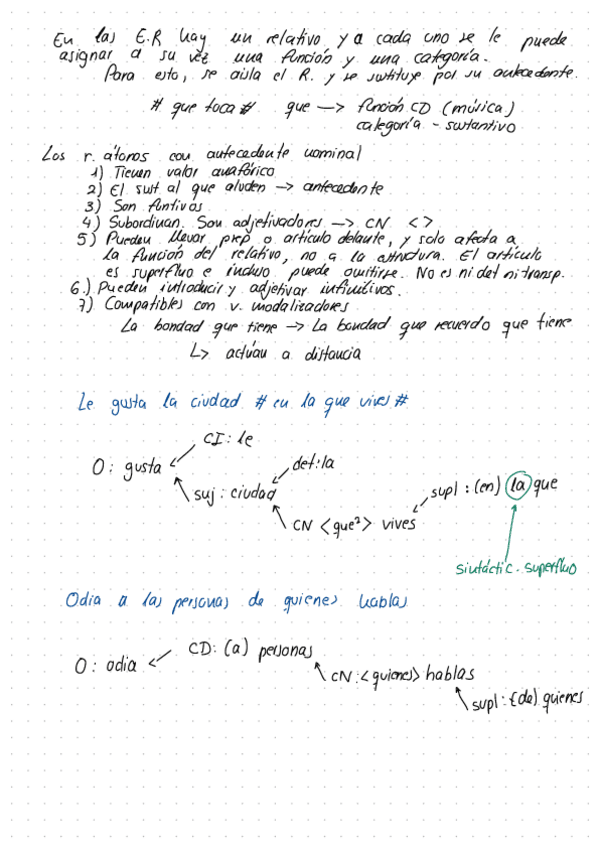 En las E.R hay un relativo y a cada uno se le puede
asignar a su vez una función y una categoría.
Para esto, se aísla el R. y se sustituye por su antecedente.
# que toca # que —> función CD (música)
categoría - sustantivo
Los r. átonos con antecedente nominal
1) Tienen valor anafórico
2) El sust al que aluden —> antecedente
3) Son funtivos
4) Subordinan. Son adjetivadores —> CN < >
5) Pueden llevar prep o artículo delante, y solo afecta a
la función del relativo, no a la estructura. El artículo
es superfluo e incluso puede omitirse. No es ni det ni transp.
6.) Pueden introducir y adjetivar infinitivos.
7) Compatibles con v. modalizadores
La bondad que tiene —> La bondad que recuerdo que tiene
L> actúan a distancia
Le gusta la ciudad # en la que vives #
CI: le
O: gusta
det: la
suj: ciudad
supl: (en) la que
CN <que²> vives
sintáctic. superfluo
Odia a las personas de quienes hablas
CD: (a) personas
O: odia
CN: <quienes> hablas
supl: {de) quienes